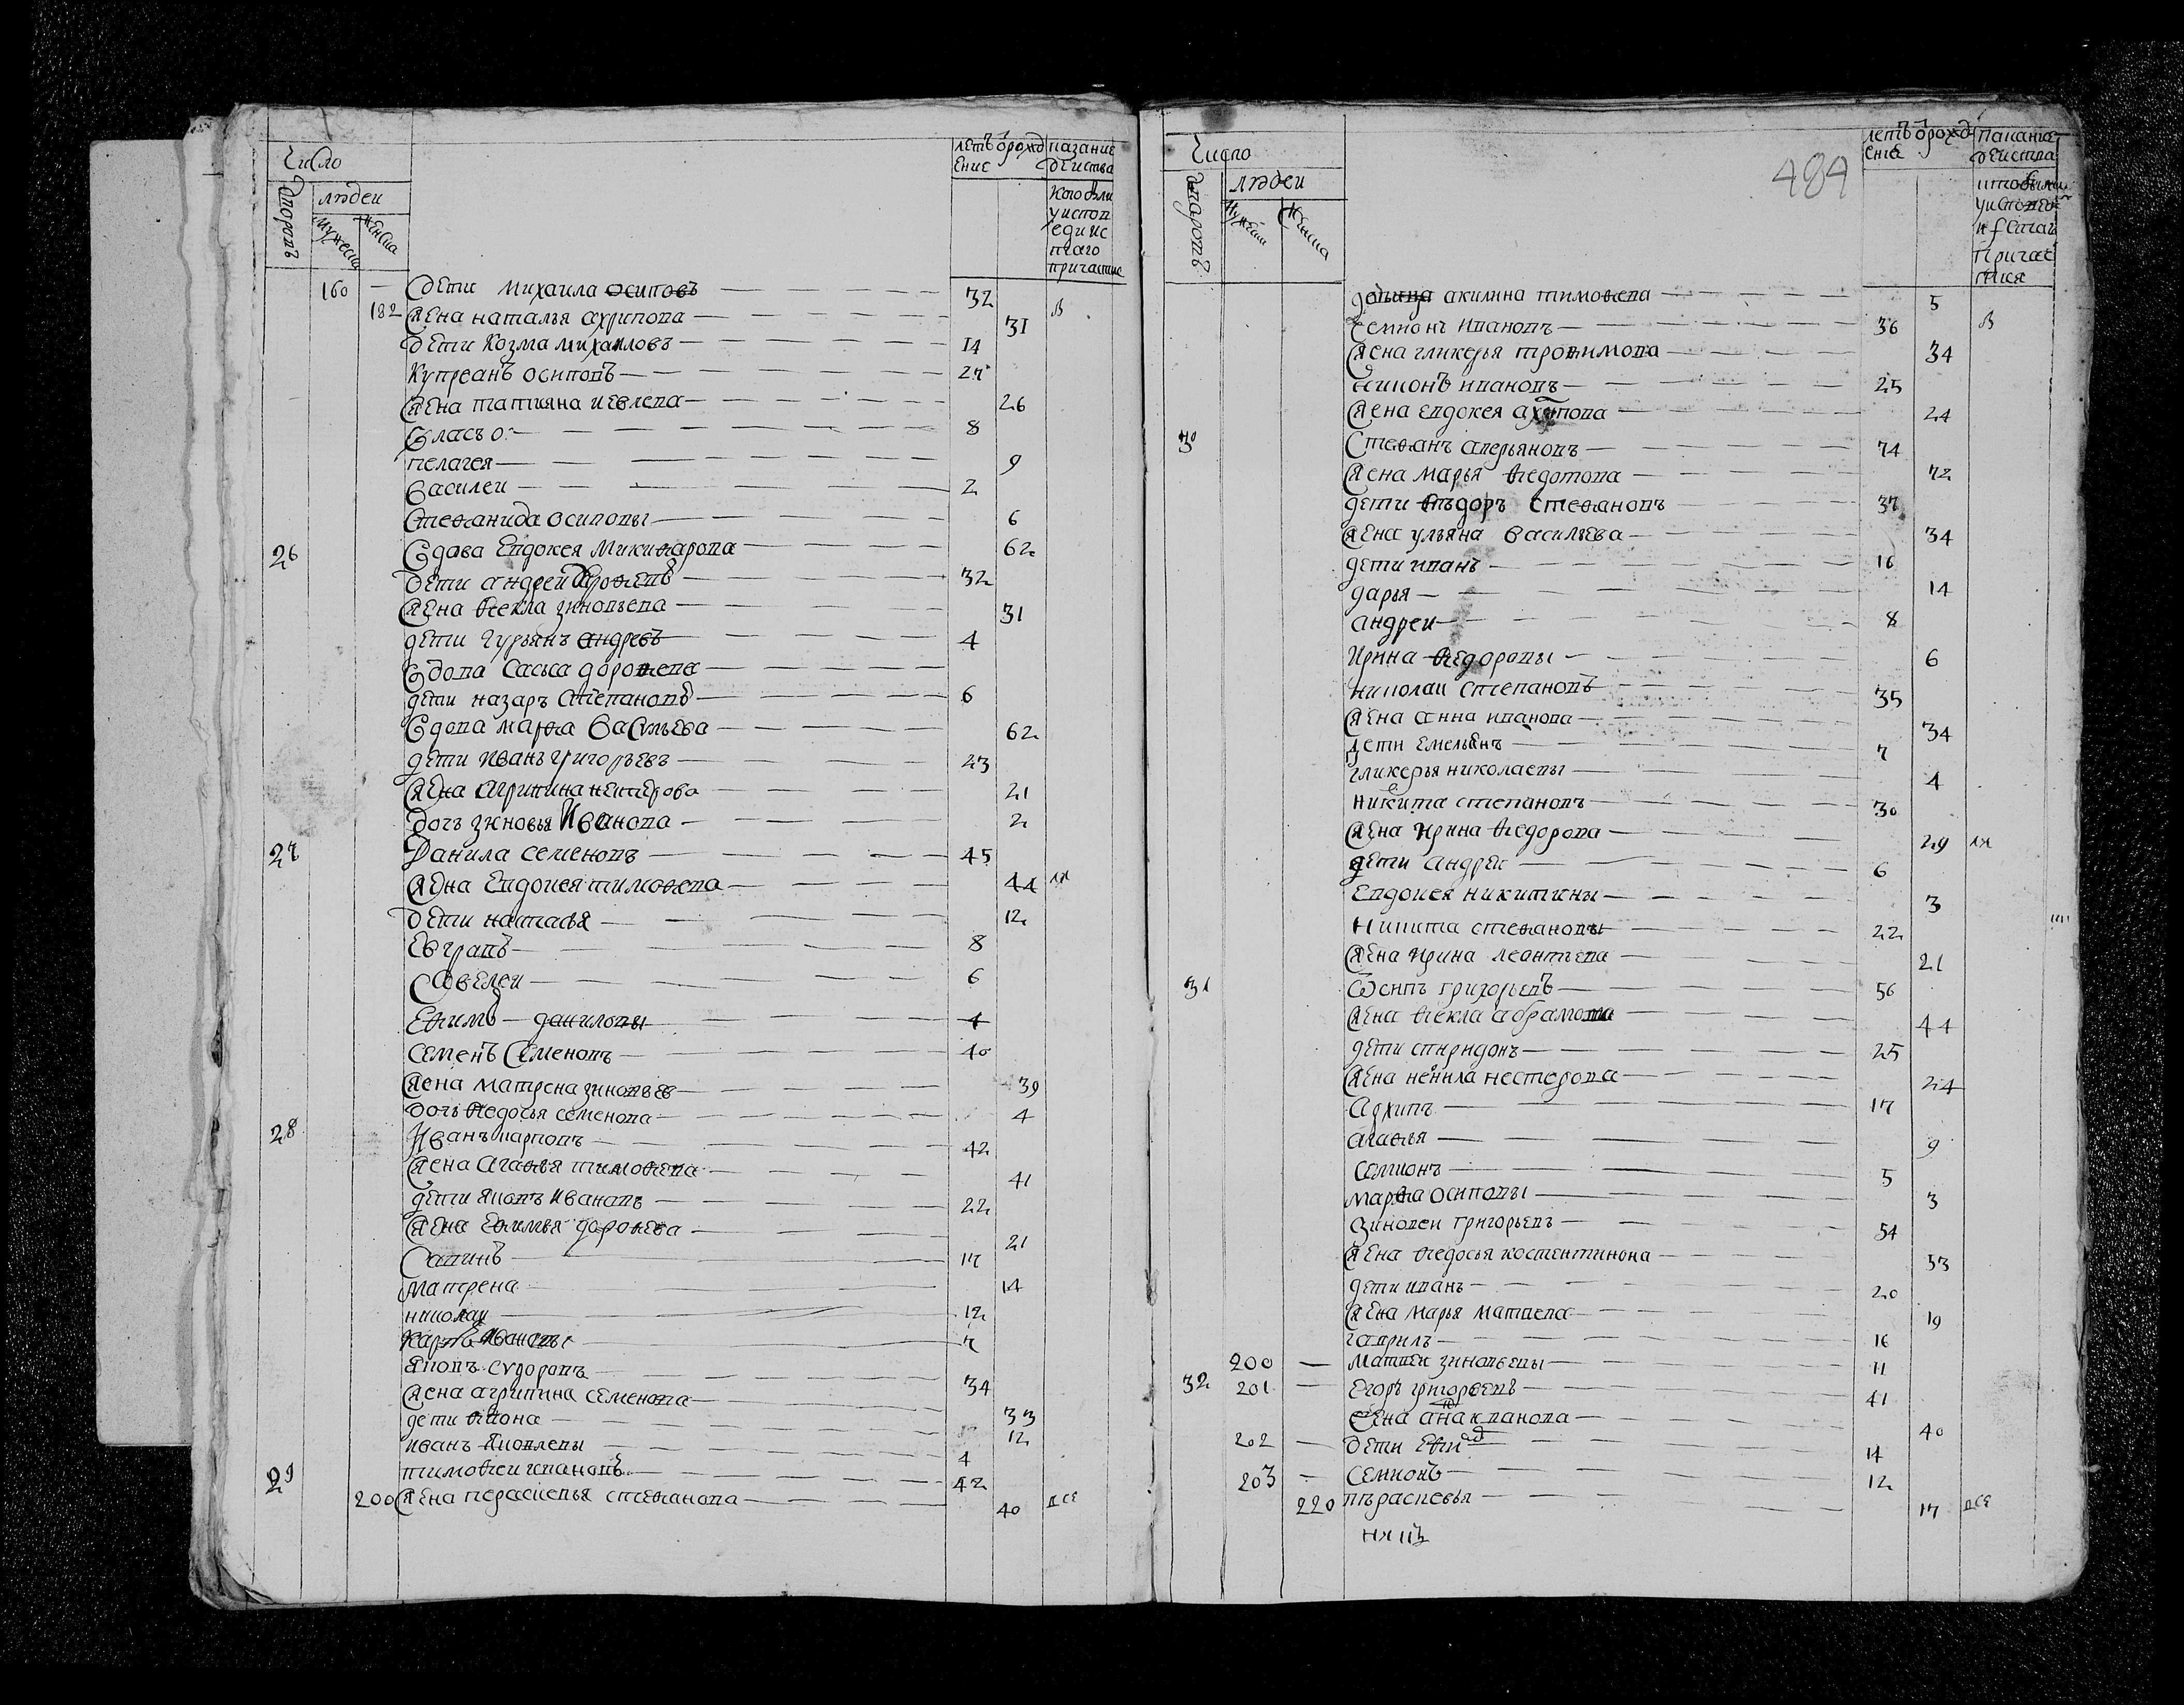 Число
дворовъ
людеи
мужеска
женска
летъ от рожд
ение
показание
действа
кто были
у испов
еди и с
втаго
причастие
160 — дети михаила осиповъ 32
182 жена наталья архипова 31 в
дети козма михаиловъ 14
купреанъ осиповъ 27
жена татияна иевлева 26
власъ 8
пелагея 9
василеи 2
стефанида осиповы 6
26 вдава евдокея микифарова 62
дети андреи дорофеевъ 32
жена фекла зиновьева 31
дети гурьянъ андревъ 4
вдова дорофеева
дети назаръ степановъ 6
вдова марфа васильева 62
дети иванъ григорьевъ 23
жена агрипина нестерова 21
дочь зиновья иванова 2
27 данила семеновъ 45
жена евдокея тимофева 44
дети наталья 12
евграпъ 8
савелеи 6
ефимъ даниловы 4
семенъ семеновъ 40
жена матрена зиновьев 39
дочь федосья семенова 4
28 иванъ карповъ 42
жена агафья тимофева 41
дети яковъ ивановъ 22
жена ефимья дорофева 21
савинъ 17
матрена 14
николаи 12
карпъ ивановы 7
яковъ сидоровъ 34
жена агрипина семенова 33
дети фиона 12
иванъ яковлевы 4
29 тимофеи ивановъ 42
200 жена перасковья стефанова 40 все
484
Число
дворовъ
людеи
мужеска
женска
летъ от рожд
ение
показание
действа
кто были
у испове
и с втаго
причас
тия
акилина тимофева 5
семионъ ивановъ 36 в
жена гликерья трофимова 34
ивановъ 25
жена евдокея 24
30 стефанъ аверьяновъ 74
жена марья федотова 72
дети фъдоръ стефановъ 37
жена ульяна васильева 34
дети иванъ 16
дарья 14
андреи 8
ирина федоровы 6
николаи степановъ 35
жена анна иванова 34
дети емельянъ 7
гликерья николаевы 4
никита степановъ 30
жена ирина федорова 29
дети андреи 6
евдокея никитины 3
никита стефановы 22
жена ирина леонтьева 21
31 осипъ григорьевъ 56
жена фекла абрамова 44
дети спиридонъ 25
жена ненила нестерова 24
архипъ 17
агафья 9
семионъ 5
марфа осиповы 3
зиновеи григорьевъ 54
жена федосья костентинова 53
дети иванъ 20
жена марья матвева 19
гаврилъ 16
200 — матвеи зиновьевы 11
32 201 — егоръ григорьевъ 41
жена 40
202 — дети 14
203 — семионъ 12
220 пърасковья 17 все